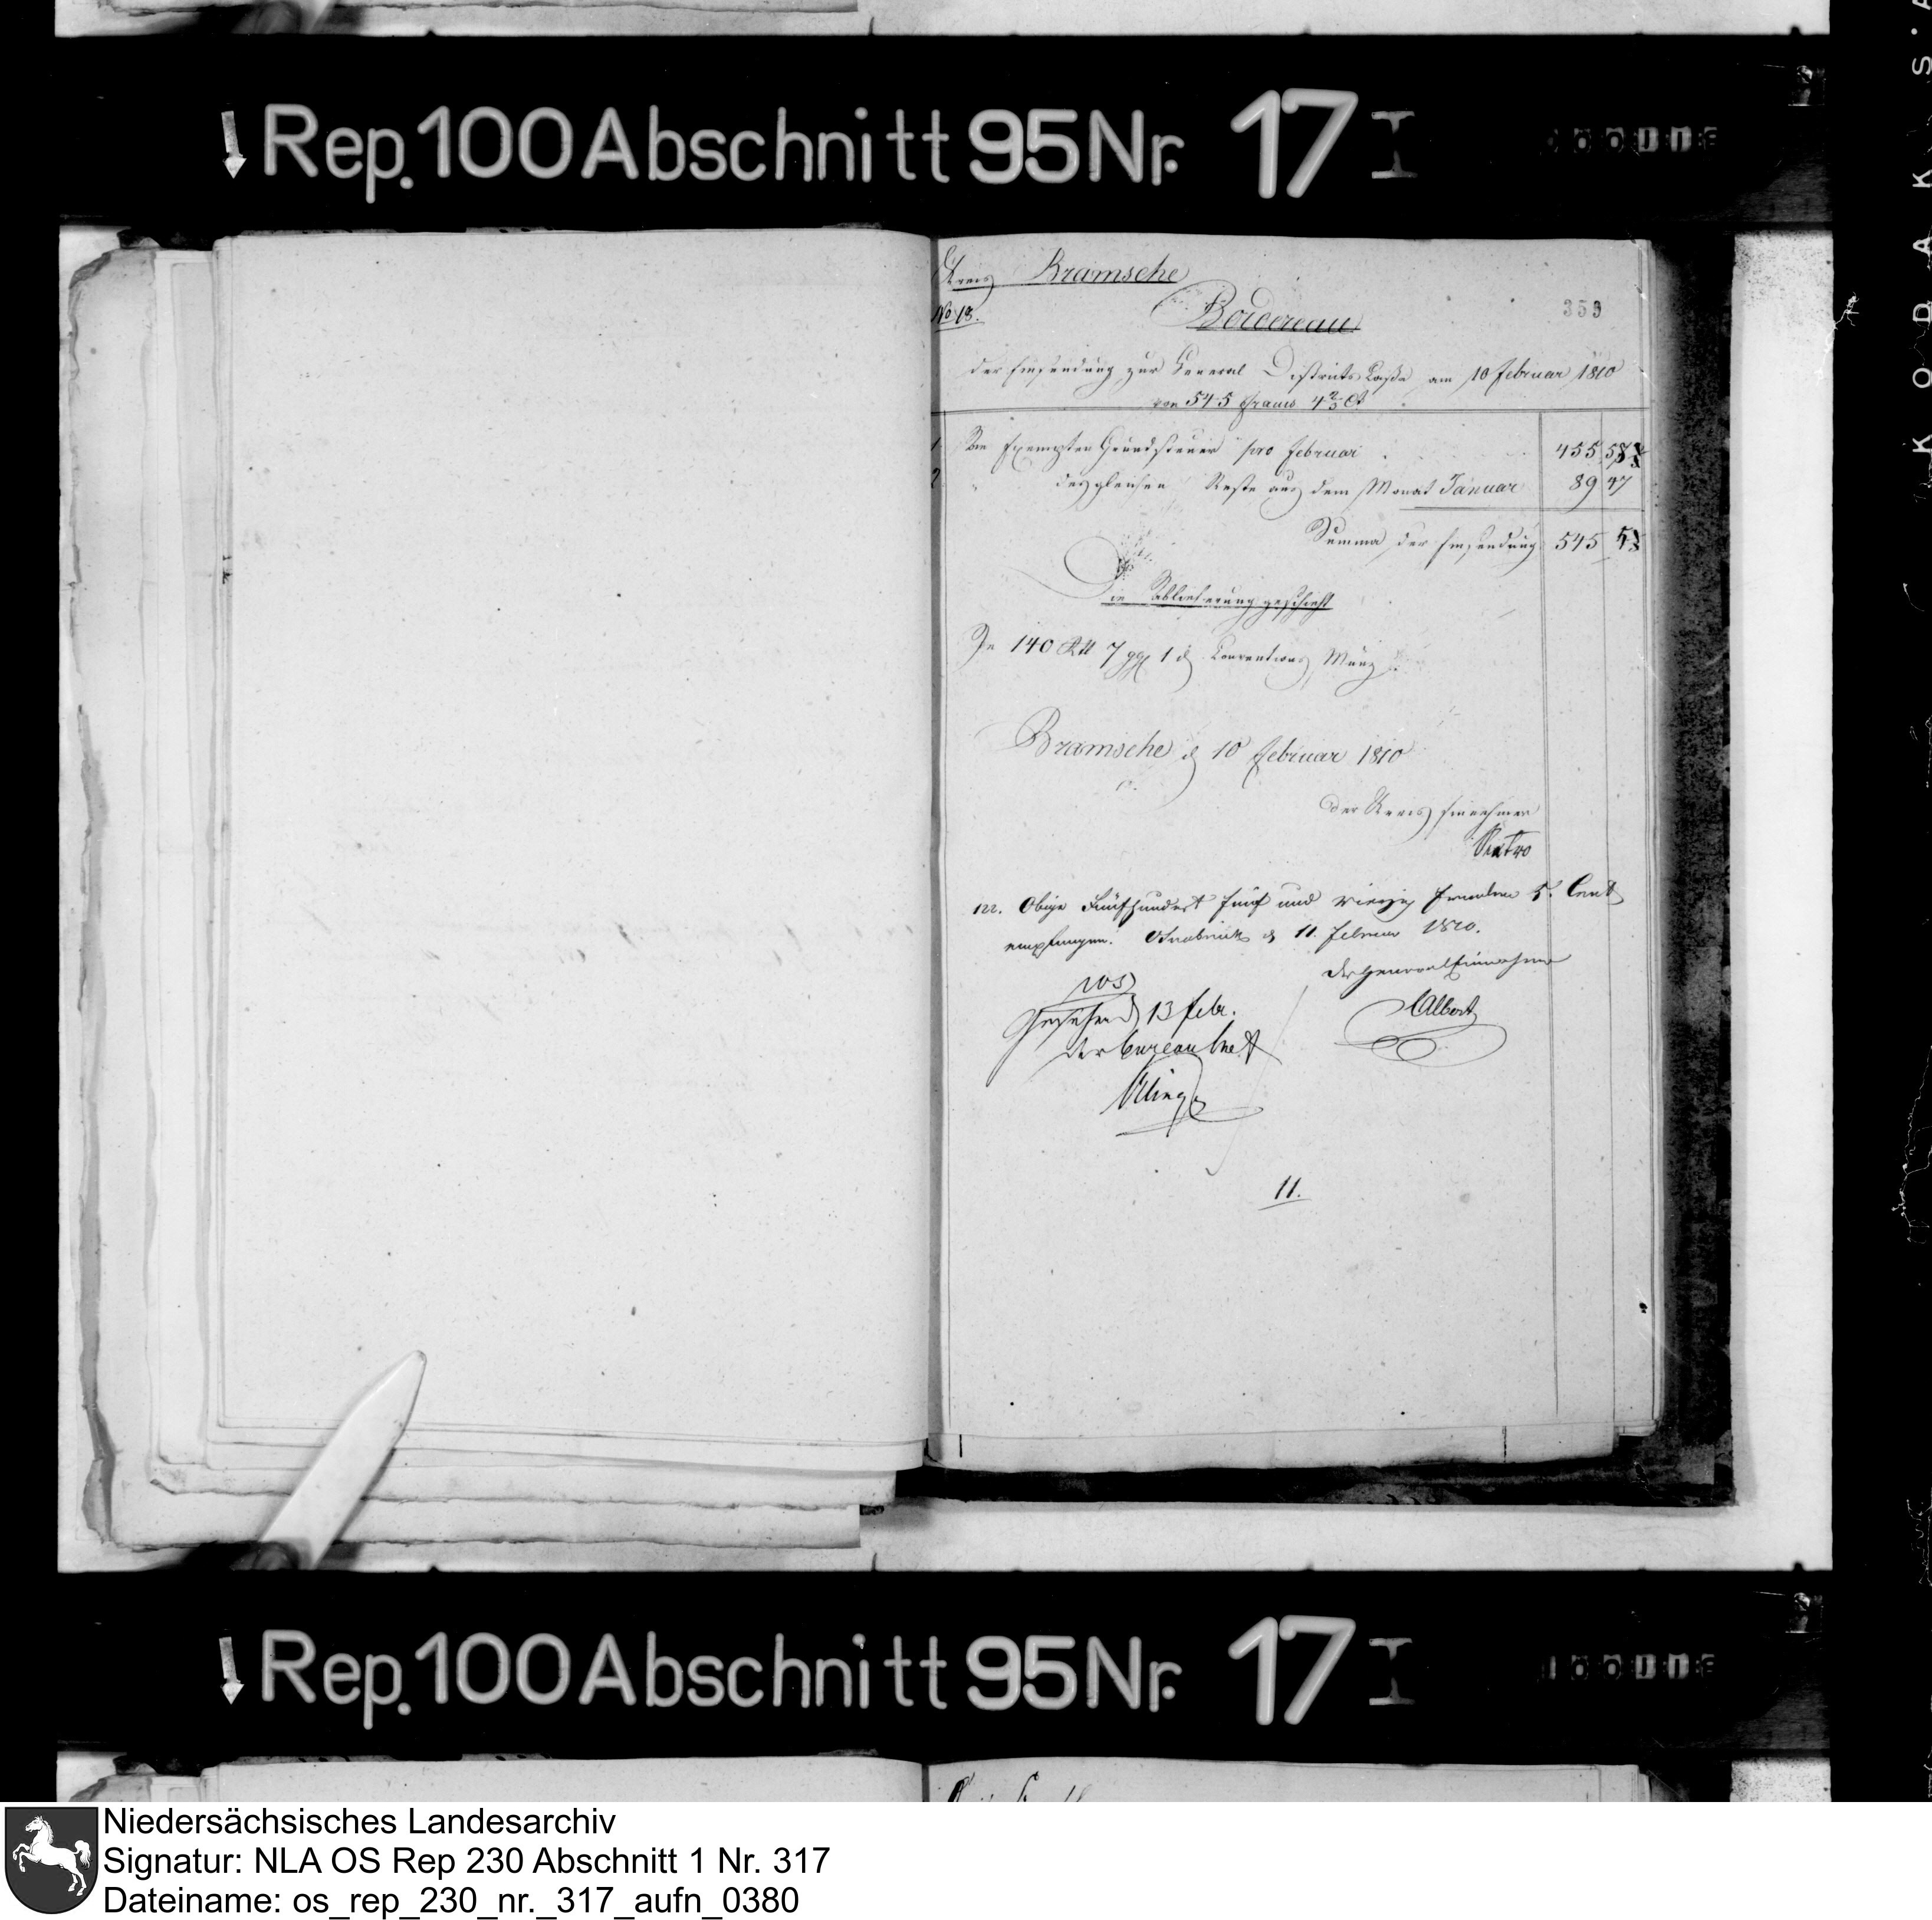 Rep. 100 Abschnitt 95 Nr. 17 I
Kreis Bramsche
No 18.
Bordereau
353
der Einsendung zur General Districts Casse am 10 Februar 1810
von 545 Francs 4 3/5 Ct
1 Von Exempten Grundsteuer pro Februar 455 57
2 " desgleichen Reste aus dem Monat Januar 89 47
Summa der Einsendung 545 4
Die Ablieferung geschieht
In 140 Rtl 7 ggr 1 d Conventions Münz
Bramsche d 10 Februar 1810
Der Kreis Einnehmer
122. Obige Fünfhundert fünf und vierzig Franken 5 Cent
empfangen. Osnabrück d 11 Februar 1810.
Der General Einnehmer
Albert
103
Gesehen d 13 Febr.
der bureau Chef
11.
Rep. 100 Abschnitt 95 Nr. 17 I
Niedersächsisches Landesarchiv
Signatur: NLA OS Rep 230 Abschnitt 1 Nr. 317
Dateiname: os_rep_230_nr._317_aufn_0380
KODAK S.A